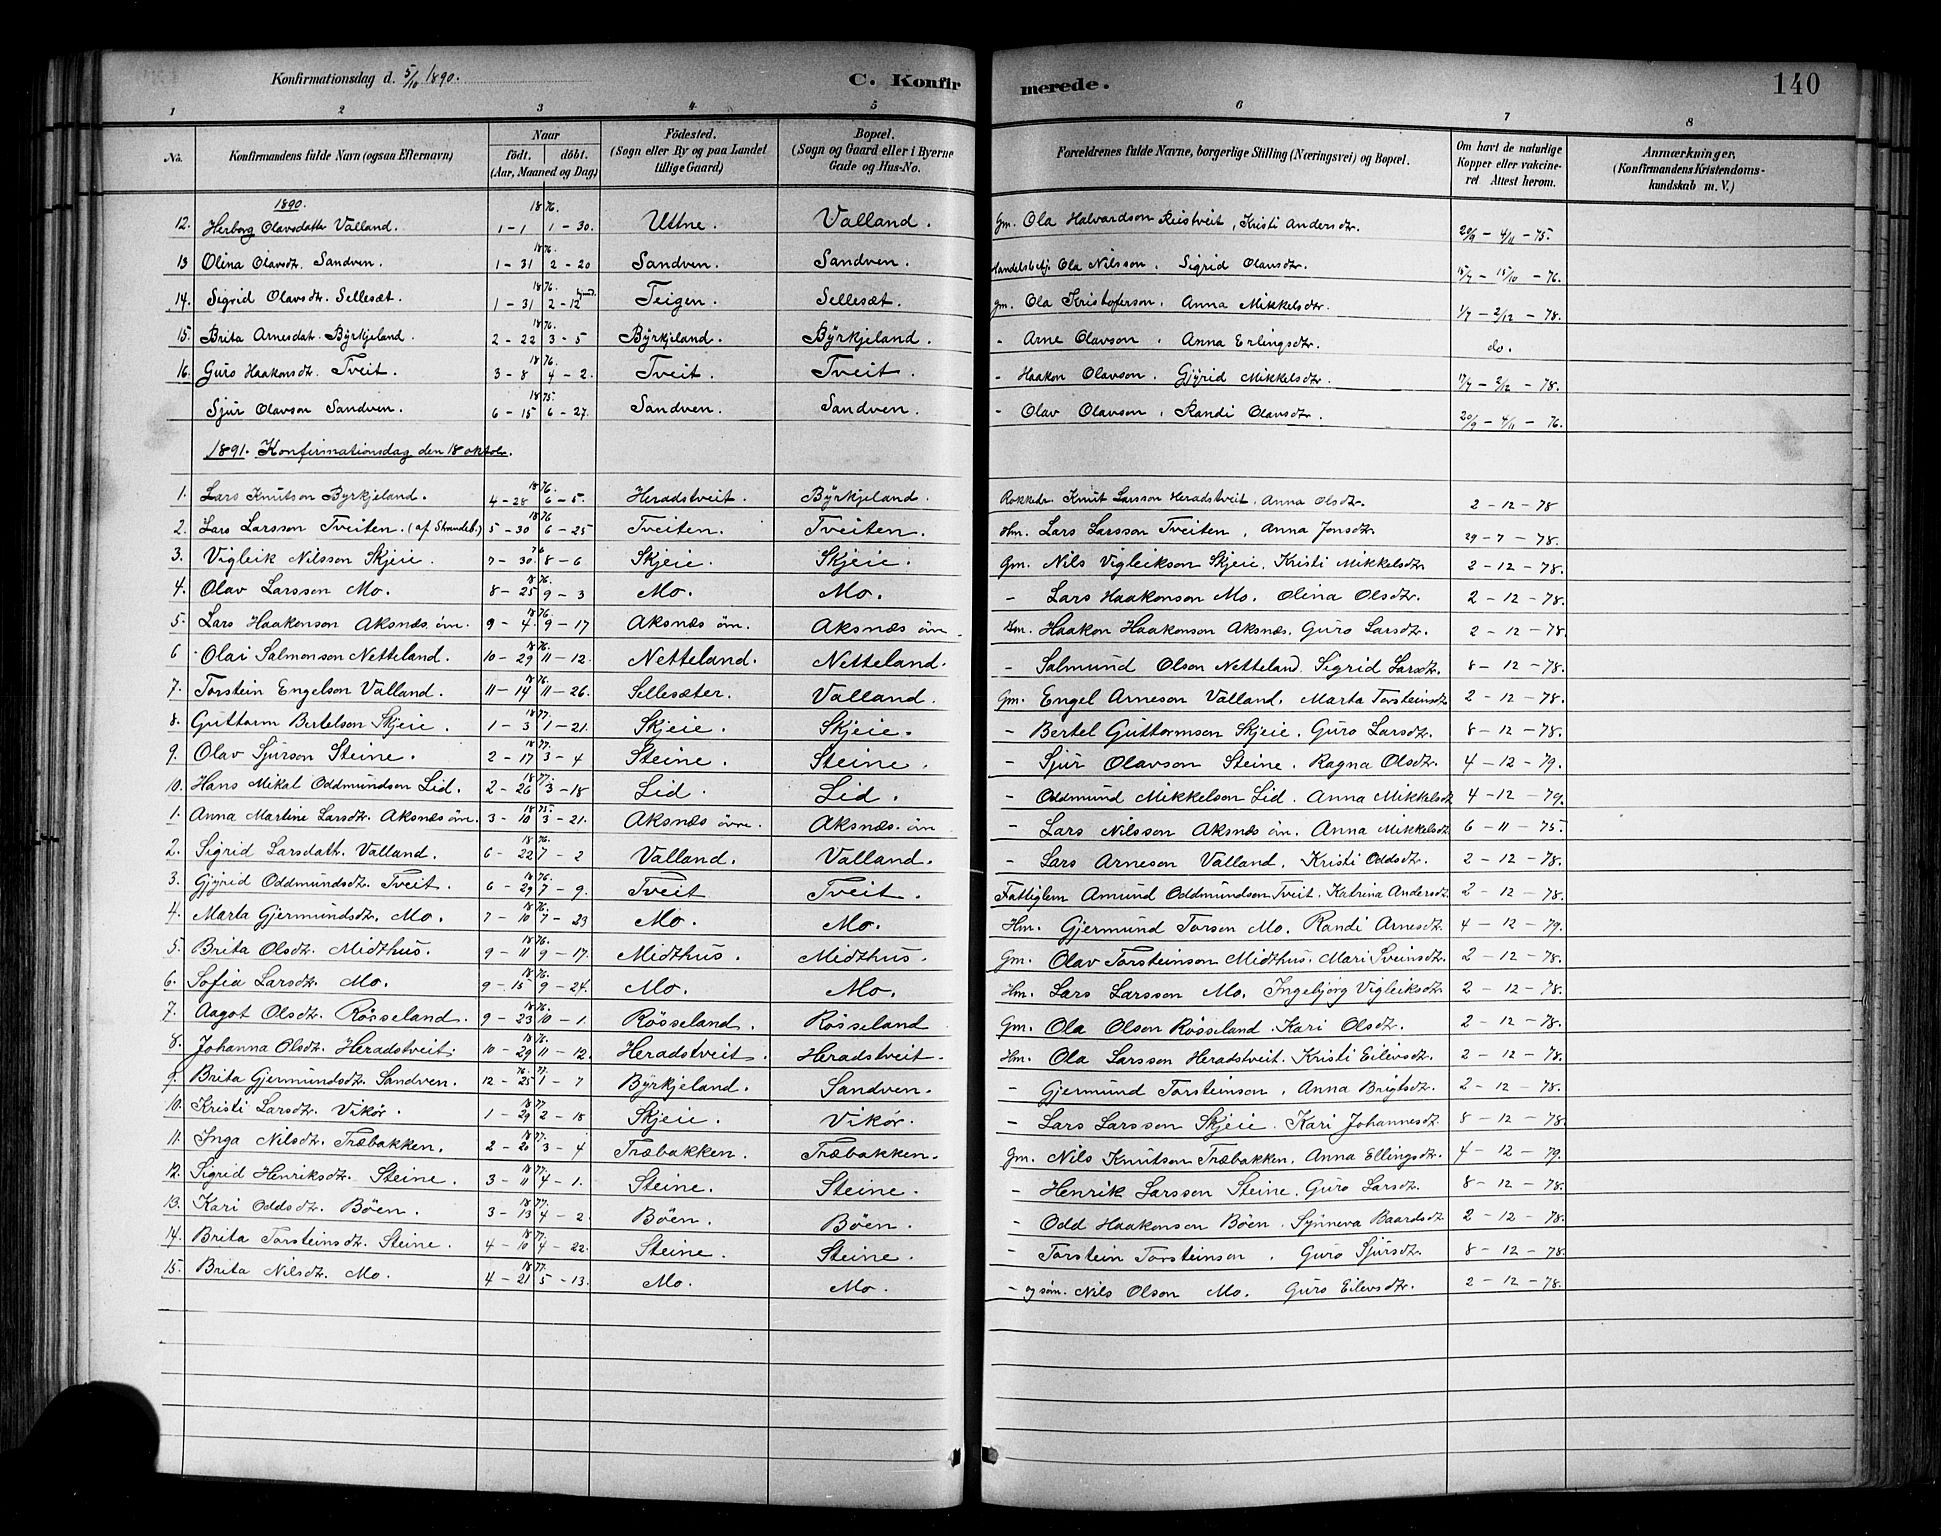 Konfirmationsdag d. 5/10 1890. C. Konfirmerede. 140
1 2 3 4 5 6 7 8
No. Konfirmandens fulde Navn (ogsaa Efternavn) Naar födt. döbt. (Aar, Maaned og Dag) Födested. (Sogn eller By og paa Landet tillige Gaard) Bopæl. (Sogn og Gaard eller i Byerne Gade og Hus-No. Forældrenes fulde Navne, borgerlige Stilling (Næringsvei) og Bopæl. Om havt de naturlige Kopper eller vakcineret Attest herom. Anmærkninger, (Konfirmandens Kristendomskundskab m. V.)
1890.
12. Herborg Olavsdattr Valland. 1876. 1-1 1-30. Uttne. Valland. Gm. Ola Halvardson Reistveit, Kristi Andersdtr. 20/9 - 4/11 - 75.
13 Olina Olavsdtr. Sandven. 1876. 1-31 2-20 Sandven. Sandven. Handelsbetj. Ola Nilsson, Sigrid Olavsdtr. 15/7 - 15/10 - 76.
14. Sigrid Olavsdtr. Sellesæt. 1876. 1-31 2-12 Teigen. Sellesæt. gm. Ola Kristoferson, Anna Mikkelsdtr 1/7 - 2/12 - 78.
15. Brita Arnesdat. Byrkjeland. 1876. 2-22 3-5 Byrkjeland. Byrkjeland. - Arne Olavson, Anna Erlingsdtr. do.
16. Guro Haakonsdtr. Tveit. 1876. 3-8 4-2. Tveit. Tveit. - Haakon Olavson. Gjyrid Mikkelsdtr. 17/7 - 2/12 - 78.
Sjur Olavson Sandven. 1875 6-15 6-27. Sandven. Sandven. - Olav Olavson, Randi Olavsdtr. 20/9 - 4/11 - 76.
1891. Konfirmationsdag den 18 oktobr.
1. Lars Knutson Byrkjeland. 1876. 4-28 6-5. Heradstveit. Byrkjeland. Rokkedr. Knut Larsson Heradstveit, Anna Olsdtr. 2-12-78
2. Lars Larsson Tveiten. (af Strandeb.) 1876 5-30 6-25 Tveiten. Tveiten. Hm. Lars Larsson Tveiten, Anna Jonsdtr. 29-7-78.
3. Vigleik Nilsson Skjeie. 76 7-30. 8-6 Skjeie. Skjeie. Gm. Nils Vigleikson Skjeie, Kristi Mikkelsdtr 2-12-78.
4. Olav Larsson Mo. 1876. 8-25 9-3 Mo. Mo. - Lars Haakonson Mo. Olina Olsdtr. 2-12-78.
5. Lars Haakonson Aksnæs. övr. 1876. 9-4. 9-17 Aksnæs övr. Aksnæs övr. Hm. Haakon Haakonson Aksnæs. Guro Larsdtr. 2-12-78.
6 Olai Salmonson Netteland. 1876. 10-29 11-12. Netteland. Netteland. - Salmund Olson Netteland. Sigrid Larsdtr. 8-12-78.
7. Torstein Engelson Valland. 1876. 11-14 11-26. Sellesæter. Valland. Gm. Engel Arneson Valland, Marta Torsteinsdtr 2-12-78.
8. Guttorm Bertelson Skjeie. 1877. 1-3 1-21. Skjeie. Skjeie. - Bertel Guttormson Skjeie. Guro Larsdtr. 8-12-78.
9. Olav Sjurson Steine. 1877. 2-17 3-4 Steine. Steine. - Sjur Olavson Steine. Ragna Olsdtr. 4-12-79.
10. Hans Mikal Oddmundson Lid. 1877. 2-26 3-18 Lid. Lid. - Oddmund Mikkelson Lid. Anna Mikkelsdtr 4-12-79.
1. Anna Martine Larsdtr. Aksnæs övr. 1875. 3-10 3-21. Aksnæs övre. Aksnæs. övr - Lars Nilsson Aksnæs övr. Anna Mikkelsdtr. 6-11-75.
2. Sigrid Larsdattr. Valland. 1876. 6-22 7-2 Valland. Valland. - Lars Arneson Valland. Kristi Oddsdtr. 2-12-78.
3. Gjyrid Oddmundsdtr. Tveit. 1876. 6-29 7-9. Tveit Tveit. Fattiglem Amund Oddmundson Tveit. Katrina Andersdtr. 2-12-78.
4. Marta Gjermundsdtr. Mo. 1876. 7-10 7-23 Mo. Mo. Hm. Gjermund Torson Mo. Randi Arnesdtr. 4-12-79.
5. Brita Olsdtr. Midthus. 1876. 9-11 9-17. Midthus. Midthus. Gm. Olav Torsteinson Midthus. Mari Sveinsdtr. 2-12-78.
6. Sofia Larsdtr. Mo. 1876. 9-15 9-24. Mo. Mo. Hm. Lars Larsson Mo. Ingebjörg Vigleiksdtr. 2-12-78.
7. Aagot Olsdtr. Rösseland. 1876. 9-23 10-1. Rösseland. Rösseland Gm. Ola Olson Rösseland. Kari Olsdtr. 2-12-78.
8. Johanna Olsdtr. Heradstveit 1876. 10-29 11-12. Heradstveit. Heradstveit. Hm. Ola Larsson Heradstveit. Kristi Eilevsdtr. 2-12-78.
9. Brita Gjermundsdtr. Sandven. 76. 77. 12-25 1-7 Byrkjeland. Sandven. - Gjermund Torsteinson, Anna Brigtsdtr. 2-12-78.
10. Kristi Larsdtr. Vikör. 1877. 1-29 2-18 Skjeie. Vikör. - Lars Larsson Skjeie. Kari Johannesdtr. 8-12-78.
11. Inga Nilsdtr. Træbakken. 1877. 2-20 3-4 Træbakken. Træbakken. Gm. Nils Knutson Træbakken. Anna Ellingsdtr. 4-12-79.
12. Sigrid Henriksdtr. Steine. 1877. 3-11 4-1. Steine. Steine. - Henrik Larsson Steine. Guro Larsdtr. 8-12-78.
13. Kari Oddsdtr. Böen. 1877. 3-13 4-2. Böen. Böen. - Odd Haakonson Böen. Synneva Baardsdtr. 2-12-78.
14. Brita Torsteinsdtr. Steine. 1877. 4-10 4-22. Steine. Steine. - Torstein Torsteinson, Guro Sjursdtr. 8-12-78.
15. Brita Nilsdtr. Mo. 1877. 4-21 5-13. Mo. Mo. - og söm. Nils Olson Mo. Guro Eilevsdtr. 2-12-78.